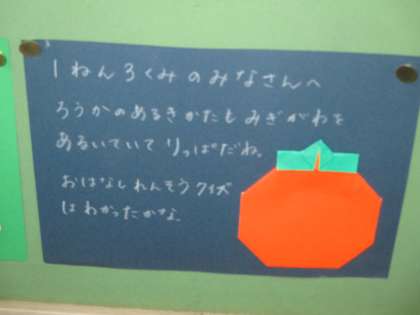 1ねん3くみのみなさんへ
ろうかのあるきかたもみぎがわを
あるいていてりっぱだね。
おはなしれんそうクイズ
はわかったかな